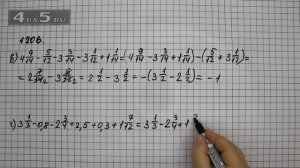 1206.
в) 4 9/14 - 5/12 - 3 3/14 - 3 1/12 + 1 1/14 = (4 9/14 - 3 3/14 + 1 1/14) - (5/12 + 3 1/12) =
= 2 7/14 - 3 6/12 = 2 1/2 - 3 1/2 = -(3 1/2 - 2 1/2) = -1
г) 3 1/3 - 0,8 - 2 3/4 + 2,5 + 0,3 + 1 7/12 = 3 1/3 - 2 3/4 + 1